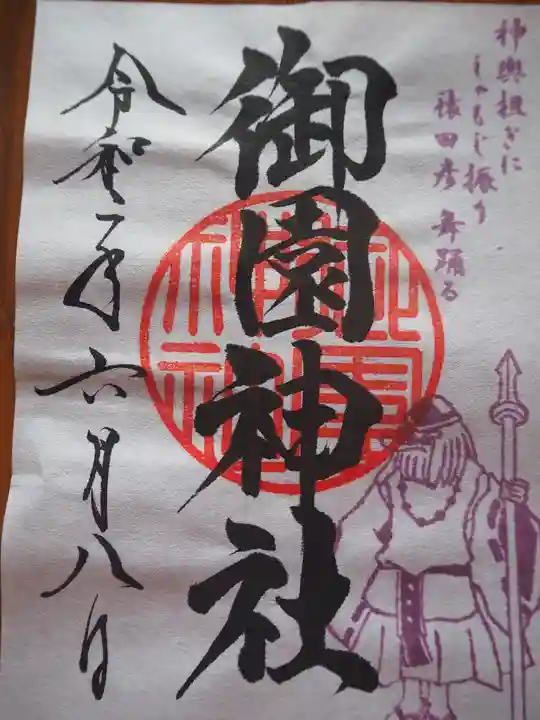 神輿担ぎに
しゃもじ振り
猿田彦 舞踊る
御園神社
令和二年六月八日